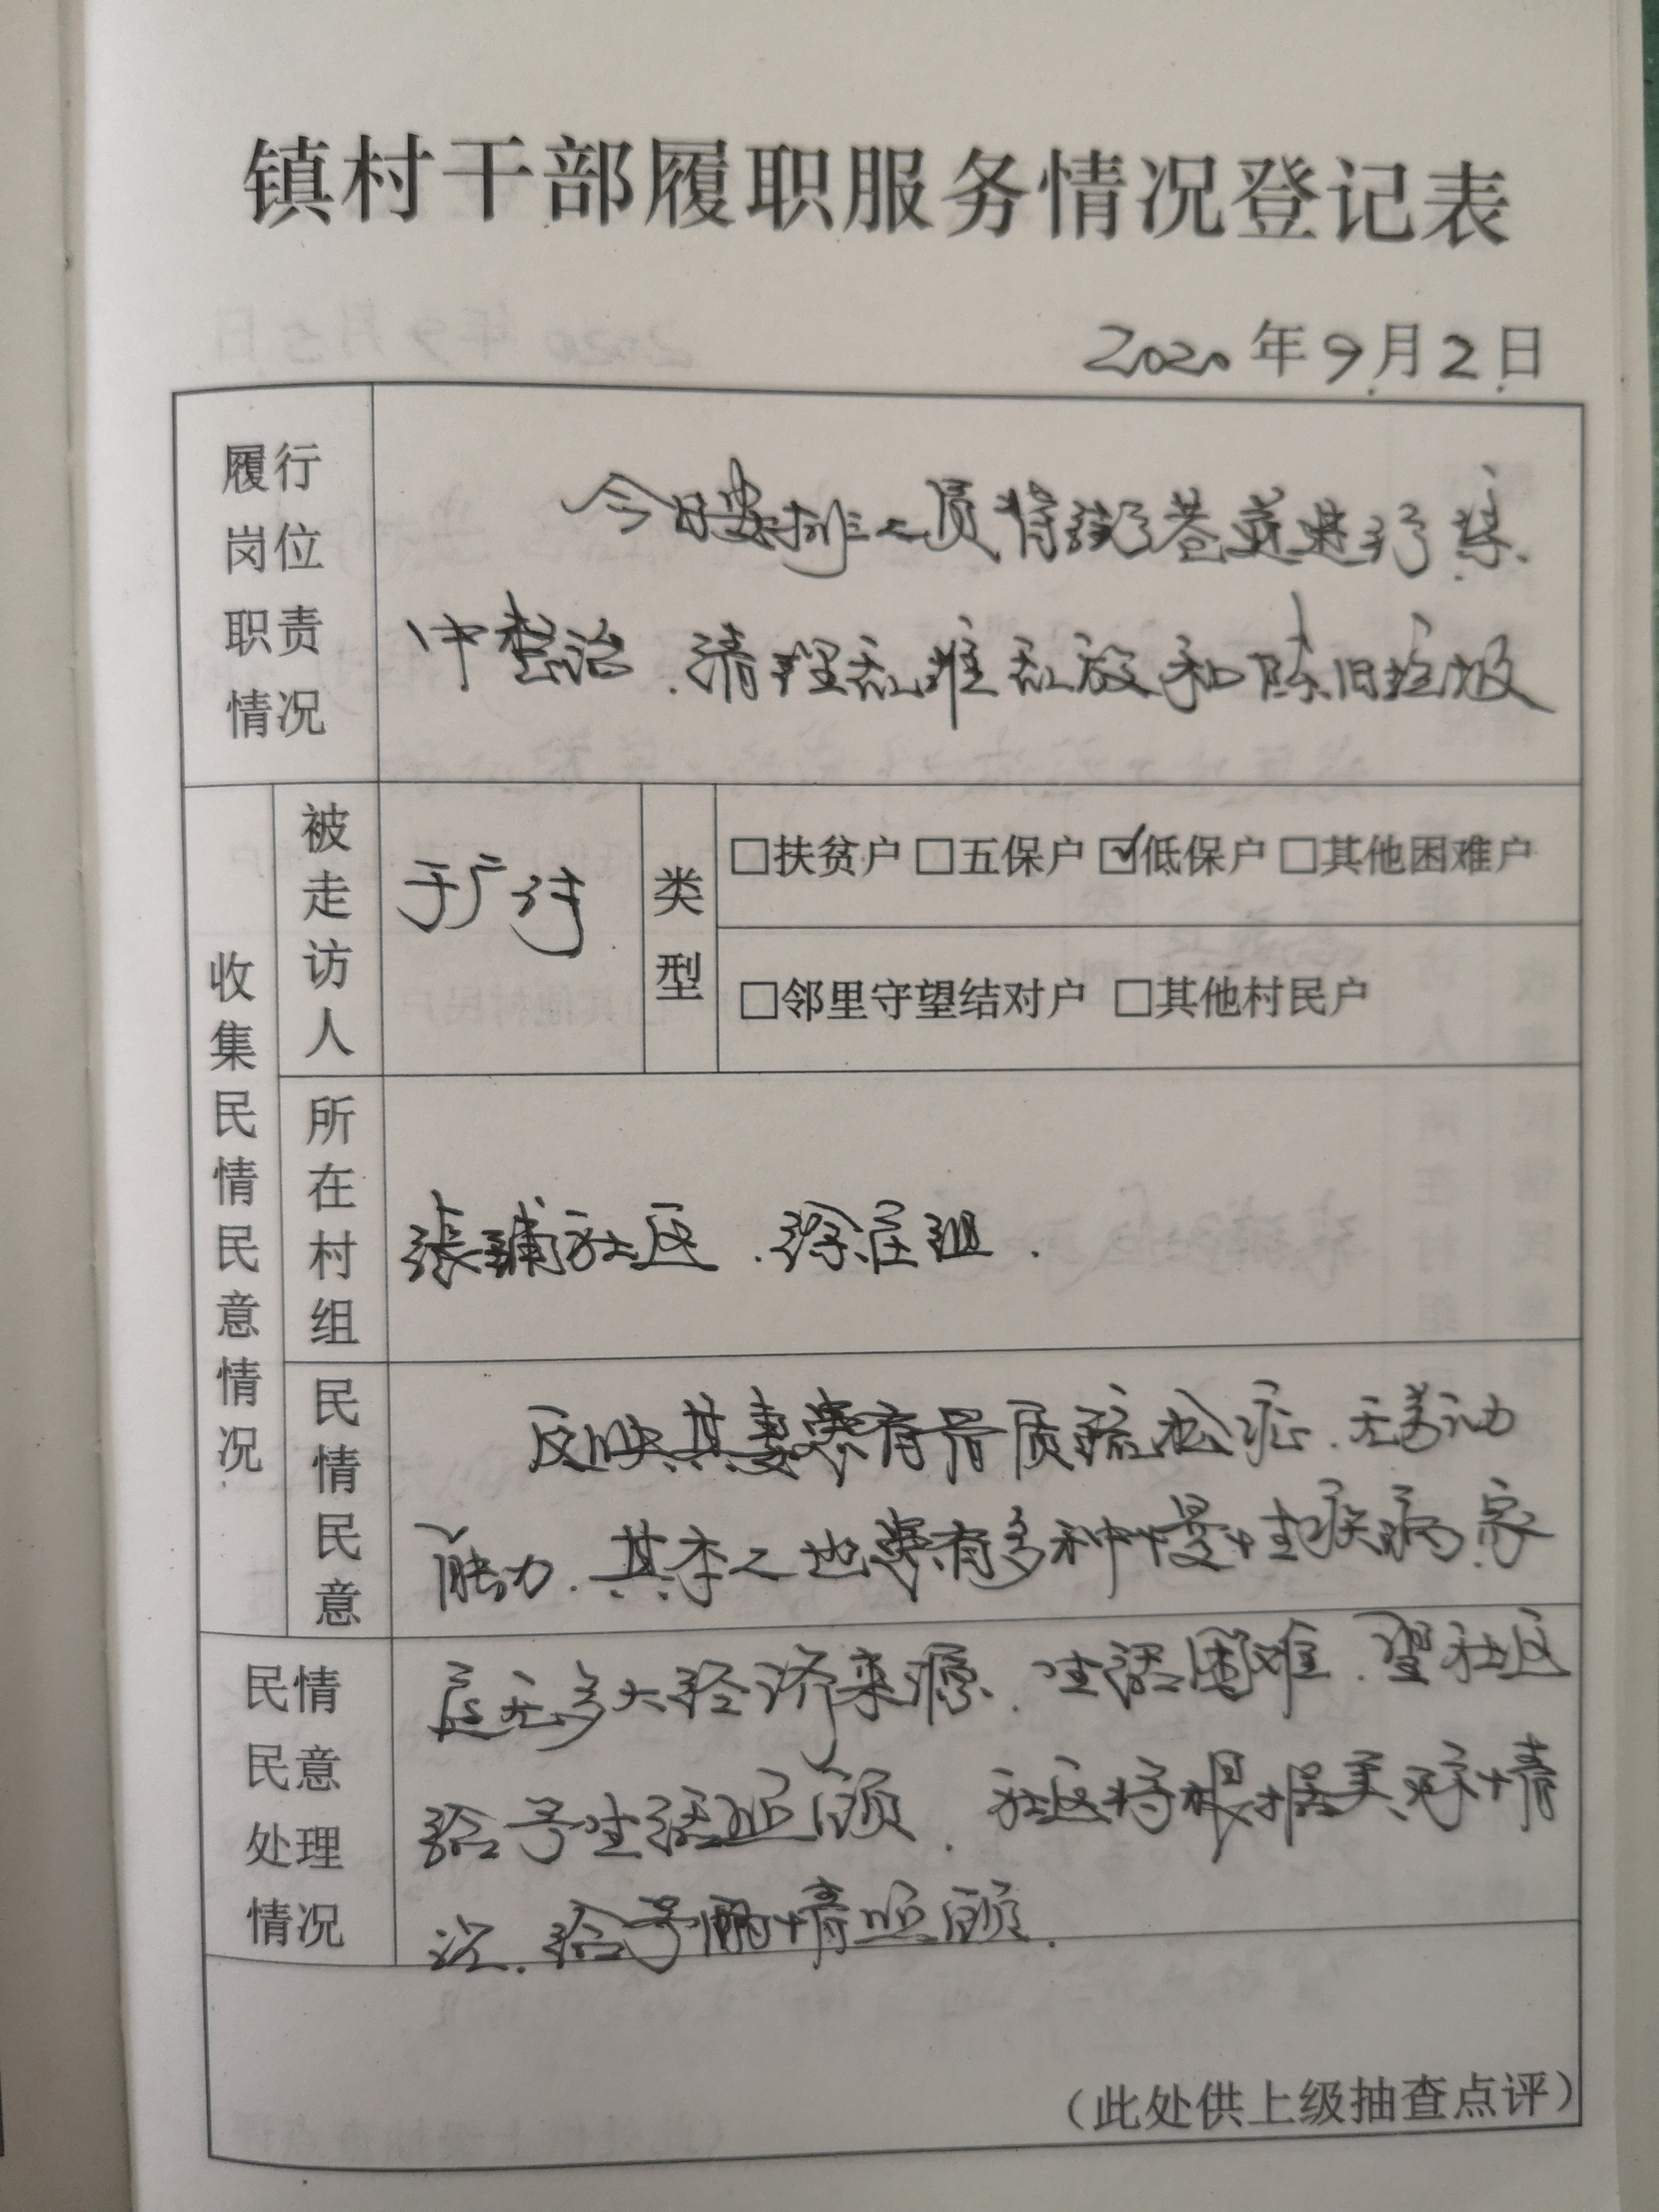 镇村干部履职服务情况登记表
2020年9月2日
履行
岗位
职责
情况
今日安排人员将巷道进行集
中整治.清理乱堆乱放和陈旧垃圾
收集民情民意情况
被走访人
于广
类型
□扶贫户 □五保户 ☑低保户 □其他困难户
□邻里守望结对户 □其他村民户
所在村组
张铺社区.徐庄组.
民情民意
反映其妻患有骨质疏松症.无劳动
能力.其本人也患有多种慢性疾病.家
民情
民意
处理
情况
庭无多大经济来源.生活困难.望社区
给予生活照顾.社区将根据实际情
况.给予酌情照顾.
（此处供上级抽查点评）